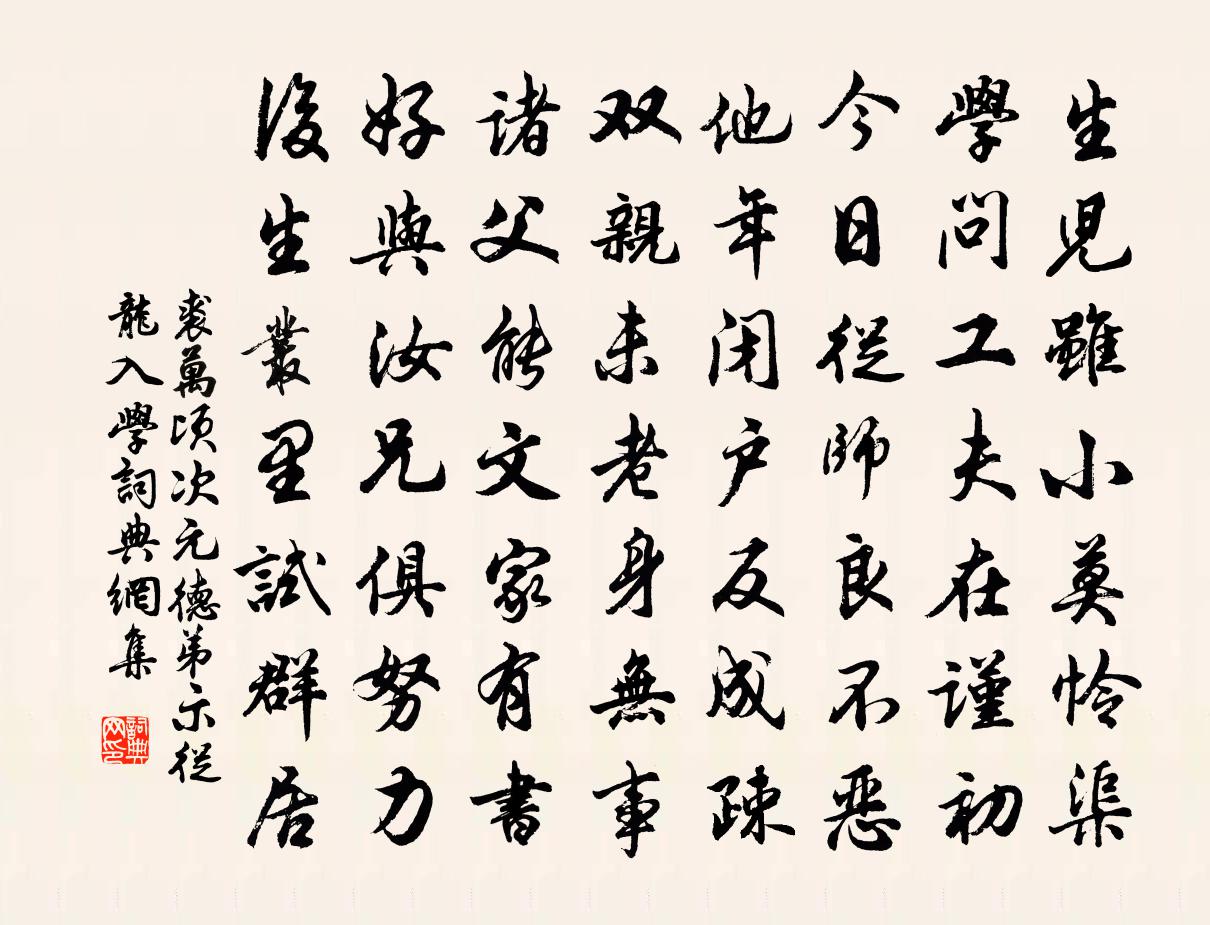 生児雖小莫怜渠
學問工夫在謹初
今日從師良不惡
他年閉户反成疎
双親未老身無事
諸父能文家有書
好與汝兄俱努力
後生叢里試群居
裘萬頃次元德弟示從
龍入學詞典網集
詞典
网印